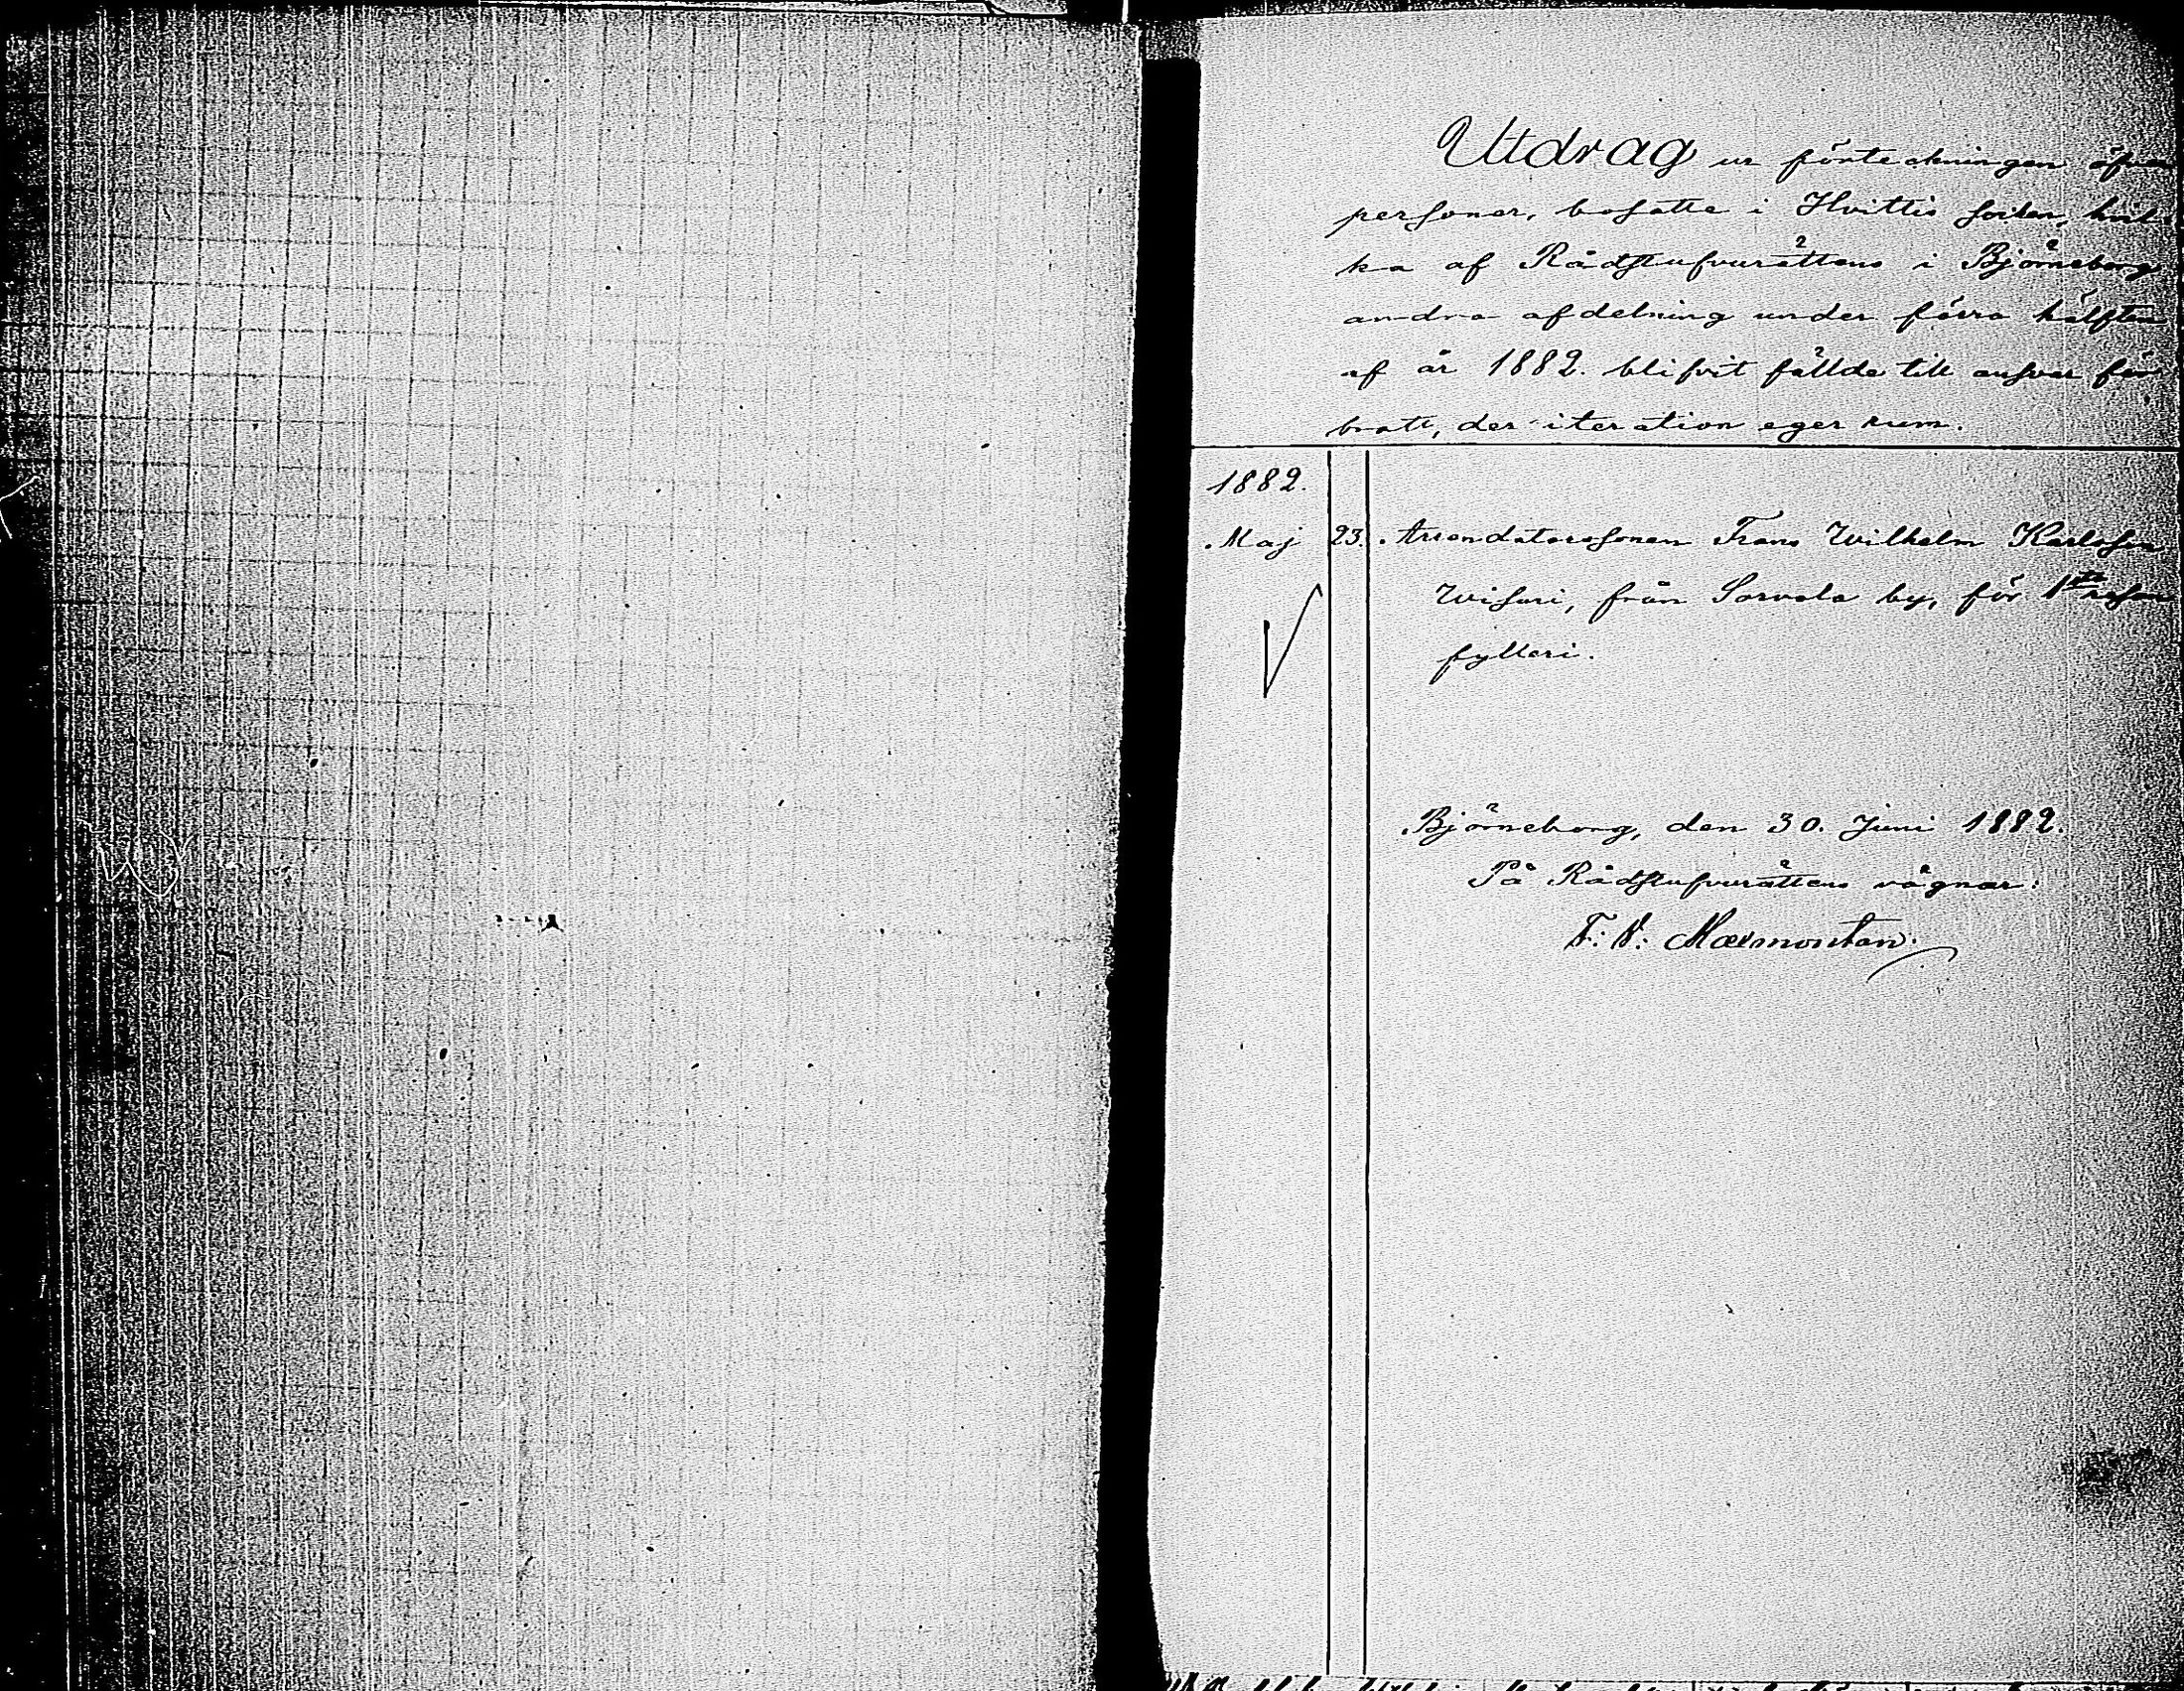 Utdrag ur förteckningen öfver
personer, bosatte i Hvittis socken, hvil-
ka af Rådstufvurättens i Björneborg
andra afdelning under förra hälften
af år 1882. blifvit fällde till ansvar för
brott, der iteration eger rum.
1882.
Maj 23. Arrendatorssonen Frans Wilhelm Karlsson
Wisari, från Sorvola by, för 1sta resan
fylleri.
Björneborg, den 30. Juni 1882.
På Rådstufvurättens vägnar:
F. V. Marmontan.